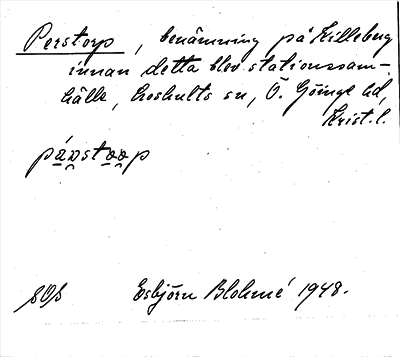 Perstorp, benämning på Killeberg
innan detta blev stationssam-
hälle, Loshults sn, Ö. Göinge hd,
Krist. l.
Esbjörn Blohmé 1948.